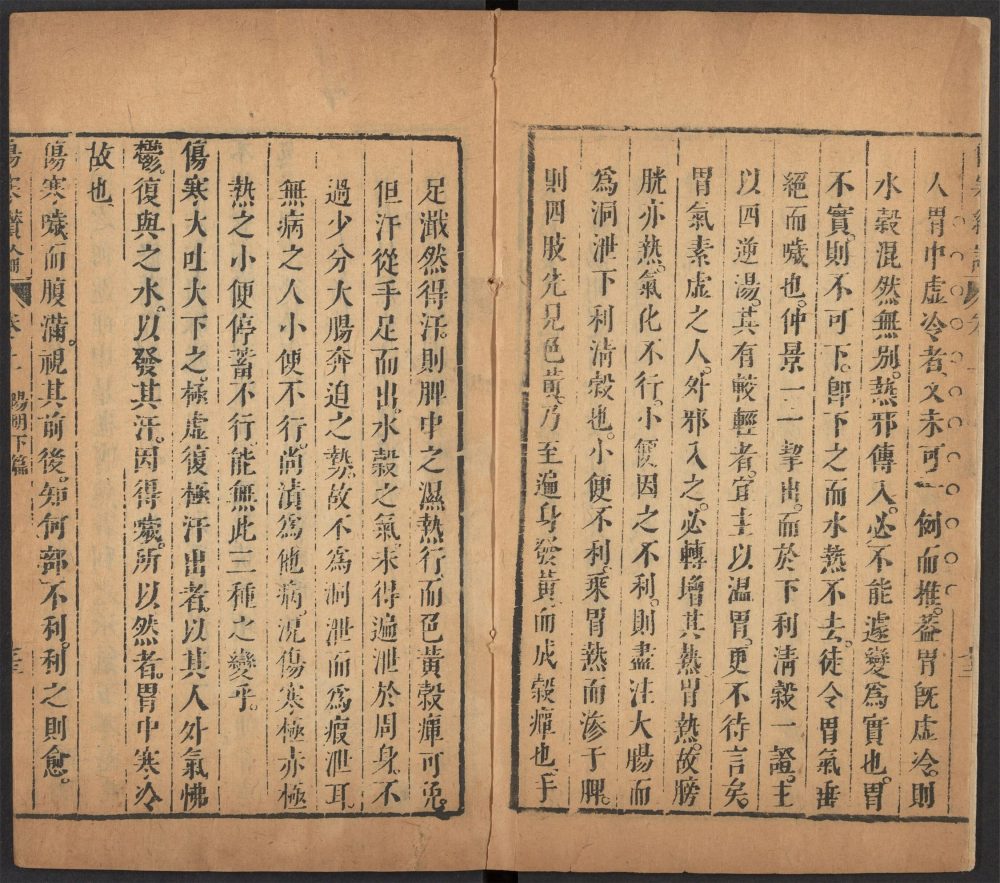 人胃中虛冷者又未可一例而推葢胃旣虛冷則
水穀混然無別熱邪傳入必不能遽變爲實也胃
不實則不可下卽下之而水熱不去徒令胃氣垂
絕而噦也仲景一一挈出而於下利清穀一證主
以四逆湯其有較輕者宜主以温胃更不待言矣
胃氣素虛之人外邪入之必轉增其熱胃熱故膀
胱亦熱氣化不行小便因之不利則盡注大腸而
爲洞泄下利清穀也小便不利乘胃熱而滲于脾
則四肢先見色黃乃至遍身發黃而成穀癉也手
足濈然得汗則脾中之濕熱行而色黃穀癉可免
但汗從手足而出水穀之氣未得遍泄於周身不
過少分大腸奔迫之勢故不爲洞泄而爲瘕泄耳
無病之人小便不行尚漬爲他病況傷寒極赤極
熱之小便停蓄不行能無此三種之變乎
傷寒大吐大下之極虛復極汗出者以其人外氣怫
鬱復與之水以發其汗因得噦所以然者胃中寒冷
故也
傷寒噦而腹滿視其前後知何部不利利之則愈
傷寒纘論 卷上 陽明下篇